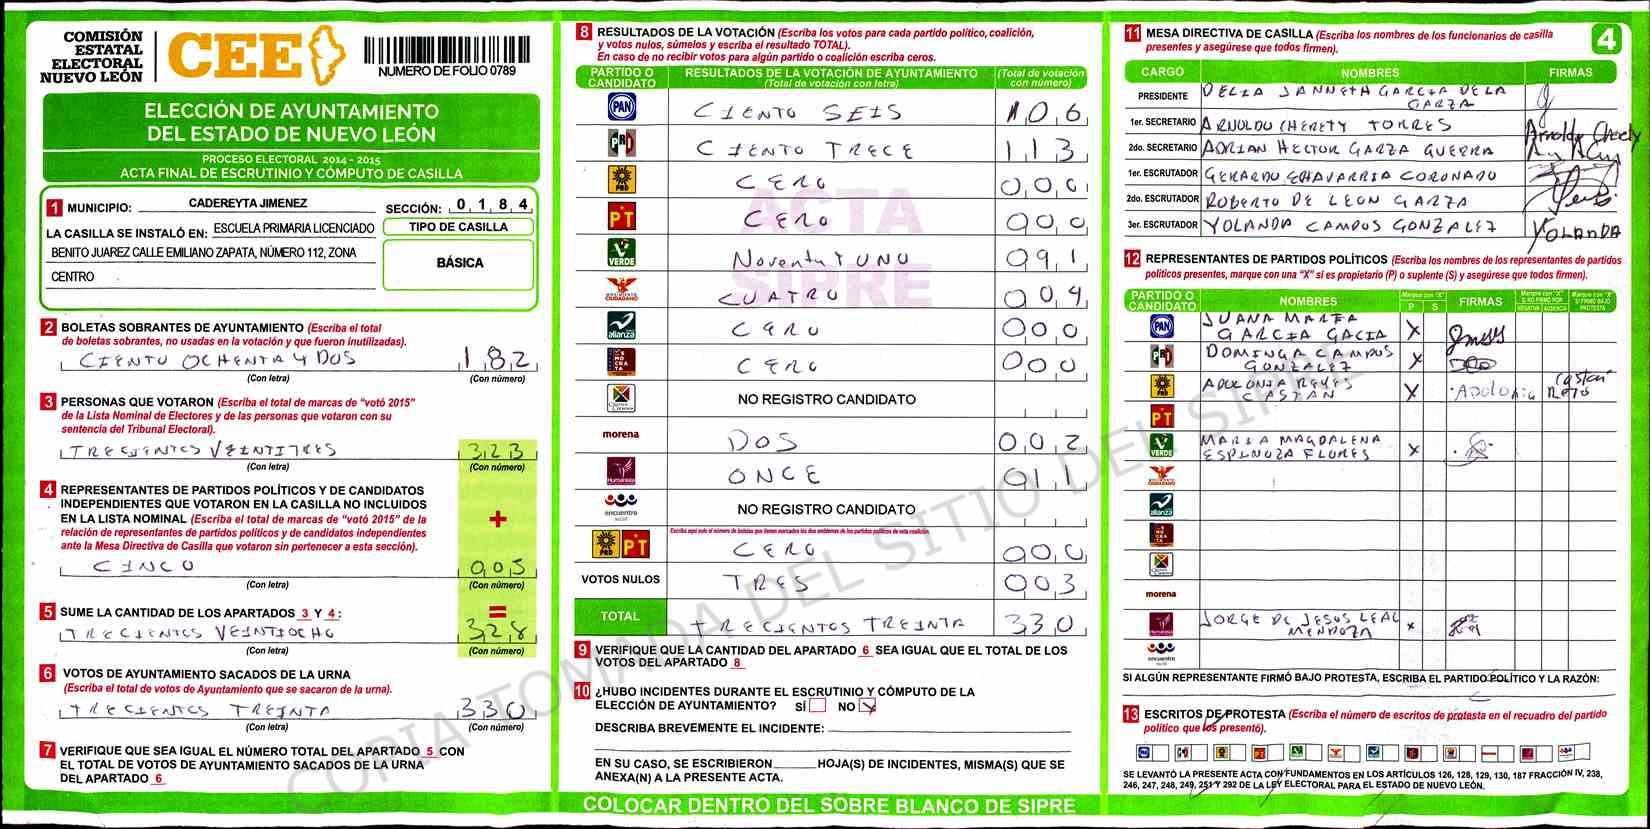 COMISIÓN
ESTATAL
ELECTORAL
NUEVO LEÓN
CEE
NUMERO DE FOLIO 0789
ELECCIÓN DE AYUNTAMIENTO
DEL ESTADO DE NUEVO LEÓN
PROCESO ELECTORAL 2014 - 2015
ACTA FINAL DE ESCRUTINIO Y CÓMPUTO DE CASILLA
1 MUNICIPIO: CADEREYTA JIMENEZ SECCIÓN: 0 1 8 4
LA CASILLA SE INSTALÓ EN: ESCUELA PRIMARIA LICENCIADO
BENITO JUAREZ CALLE EMILIANO ZAPATA, NÚMERO 112, ZONA
CENTRO
TIPO DE CASILLA
BÁSICA
2 BOLETAS SOBRANTES DE AYUNTAMIENTO (Escriba el total
de boletas sobrantes, no usadas en la votación y que fueron inutilizadas).
CIENTO OCHENTA Y DOS 182
(Con letra) (Con número)
3 PERSONAS QUE VOTARON (Escriba el total de marcas de "votó 2015"
de la Lista Nominal de Electores y de las personas que votaron con su
sentencia del Tribunal Electoral).
TRECIENTOS VEINTITRES 323
(Con letra) (Con número)
4 REPRESENTANTES DE PARTIDOS POLÍTICOS Y DE CANDIDATOS
INDEPENDIENTES QUE VOTARON EN LA CASILLA NO INCLUIDOS
EN LA LISTA NOMINAL (Escriba el total de marcas de "votó 2015" de la
relación de representantes de partidos políticos y de candidatos independientes
ante la Mesa Directiva de Casilla que votaron sin pertenecer a esta sección).
+
CINCO 005
(Con letra) (Con número)
5 SUME LA CANTIDAD DE LOS APARTADOS 3 Y 4: =
TRECIENTOS VEINTIOCHO 328
(Con letra) (Con número)
6 VOTOS DE AYUNTAMIENTO SACADOS DE LA URNA
(Escriba el total de votos de Ayuntamiento que se sacaron de la urna).
TRECIENTOS TREINTA 330
(Con letra) (Con número)
7 VERIFIQUE QUE SEA IGUAL EL NÚMERO TOTAL DEL APARTADO 5 CON
EL TOTAL DE VOTOS DE AYUNTAMIENTO SACADOS DE LA URNA
DEL APARTADO 6
8 RESULTADOS DE LA VOTACIÓN (Escriba los votos para cada partido político, coalición,
y votos nulos, súmelos y escriba el resultado TOTAL).
En caso de no recibir votos para algún partido o coalición escriba ceros.
PARTIDO O CANDIDATO
RESULTADOS DE LA VOTACIÓN DE AYUNTAMIENTO
(Total de votación con letra)
(Total de votación con número)
PAN CIENTO SEIS 106
PRI CIENTO TRECE 113
PRD CERO 000
PT CERO 000
VERDE Noventa Y UNO 091
MOVIMIENTO CIUDADANO CUATRO 004
alianza CERO 000
DEMOCRATA CERO 000
NO REGISTRO CANDIDATO
morena DOS 002
Humanista ONCE 011
encuentro social NO REGISTRO CANDIDATO
Escriba aquí solo el número de boletas que tienen marcados los dos emblemas de los partidos políticos de esta coalición
PRD PT CERO 000
VOTOS NULOS TRES 003
TOTAL TRECIENTOS TREINTA 330
ACTA
SIPRE
9 VERIFIQUE QUE LA CANTIDAD DEL APARTADO 6 SEA IGUAL QUE EL TOTAL DE LOS
VOTOS DEL APARTADO 8
10 ¿HUBO INCIDENTES DURANTE EL ESCRUTINIO Y CÓMPUTO DE LA
ELECCIÓN DE AYUNTAMIENTO? SÍ NO X
DESCRIBA BREVEMENTE EL INCIDENTE:
EN SU CASO, SE ESCRIBIERON HOJA(S) DE INCIDENTES, MISMA(S) QUE SE
ANEXA(N) A LA PRESENTE ACTA.
COLOCAR DENTRO DEL SOBRE BLANCO DE SIPRE
11 MESA DIRECTIVA DE CASILLA (Escriba los nombres de los funcionarios de casilla
presentes y asegúrese que todos firmen).
4
CARGO NOMBRES FIRMAS
PRESIDENTE DELIA JANNETH GARCIA DE LA
GARZA
1er. SECRETARIO ARNOLDO CHERETY TORRES
2do. SECRETARIO ADRIAN HECTOR GARZA GUERRA
1er. ESCRUTADOR GERARDO ECHAVARRIA CORONADO
2do. ESCRUTADOR ROBERTO DE LEON GARZA
3er. ESCRUTADOR YOLANDA CAMPOS GONZALEZ YOLANDA
12 REPRESENTANTES DE PARTIDOS POLÍTICOS (Escriba los nombres de los representantes de partidos
políticos presentes, marque con una "X" si es propietario (P) o suplente (S) y asegúrese que todos firmen).
PARTIDO O CANDIDATO NOMBRES Marque con "X" P S FIRMAS Marque con "X" SI NO FIRMÓ POR NEGATIVA AUSENCIA Marque con "X" SI FIRMÓ BAJO PROTESTA
PAN JUANA MARIA
GARCIA GACIA X
PRI DOMINGA CAMPOS
GONZALEZ X
PRD APOLONIA REYES
CASTAN X
PT
VERDE MARIA MAGDALENA
ESPINOZA FLORES X
MOVIMIENTO CIUDADANO
alianza
DEMOCRATA
morena
Humanista JORGE DE JESUS LEAL
MENDOZA X
encuentro social
SI ALGÚN REPRESENTANTE FIRMÓ BAJO PROTESTA, ESCRIBA EL PARTIDO POLÍTICO Y LA RAZÓN:
13 ESCRITOS DE PROTESTA (Escriba el número de escritos de protesta en el recuadro del partido
político que los presentó).
SE LEVANTÓ LA PRESENTE ACTA CON FUNDAMENTOS EN LOS ARTÍCULOS 126, 128, 129, 130, 187 FRACCIÓN IV, 238,
246, 247, 248, 249, 251 Y 292 DE LA LEY ELECTORAL PARA EL ESTADO DE NUEVO LEÓN.
COPIA TOMADA DEL SITIO DEL SIPRE